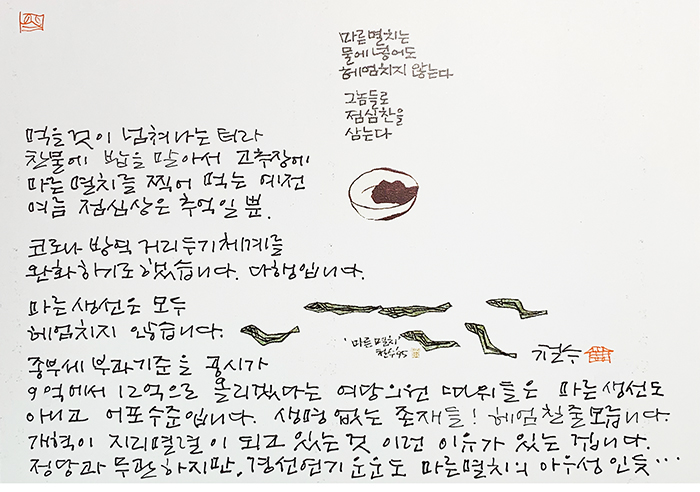 마른멸치는
물에 넣어도
헤엄치지 않는다
그놈들로
점심찬을
삼는다
먹을 것이 넘쳐나는 터라
찬물에 밥을 말아서 고추장에
마른 멸치를 찍어 먹는 예전
여름 점심상은 추억일 뿐.
코로나 방역 거리두기체계를
완화하기로 했습니다. 다행입니다.
마른 생선은 모두
헤엄치지 않습니다.
'마른멸치'
철수
종부세 부과기준을 공시가
9억에서 12억으로 올리겠다는 여당의원 따위들은 마른생선도
아니고 어포수준입니다. 생명 없는 존재들! 헤엄칠줄모릅니다.
개혁이 지리멸렬이 되고 있는것 이런 이유가 있는 겁니다.
정당과 무관하지만, 경선연기 운운도 마른멸치의 아우성인듯…